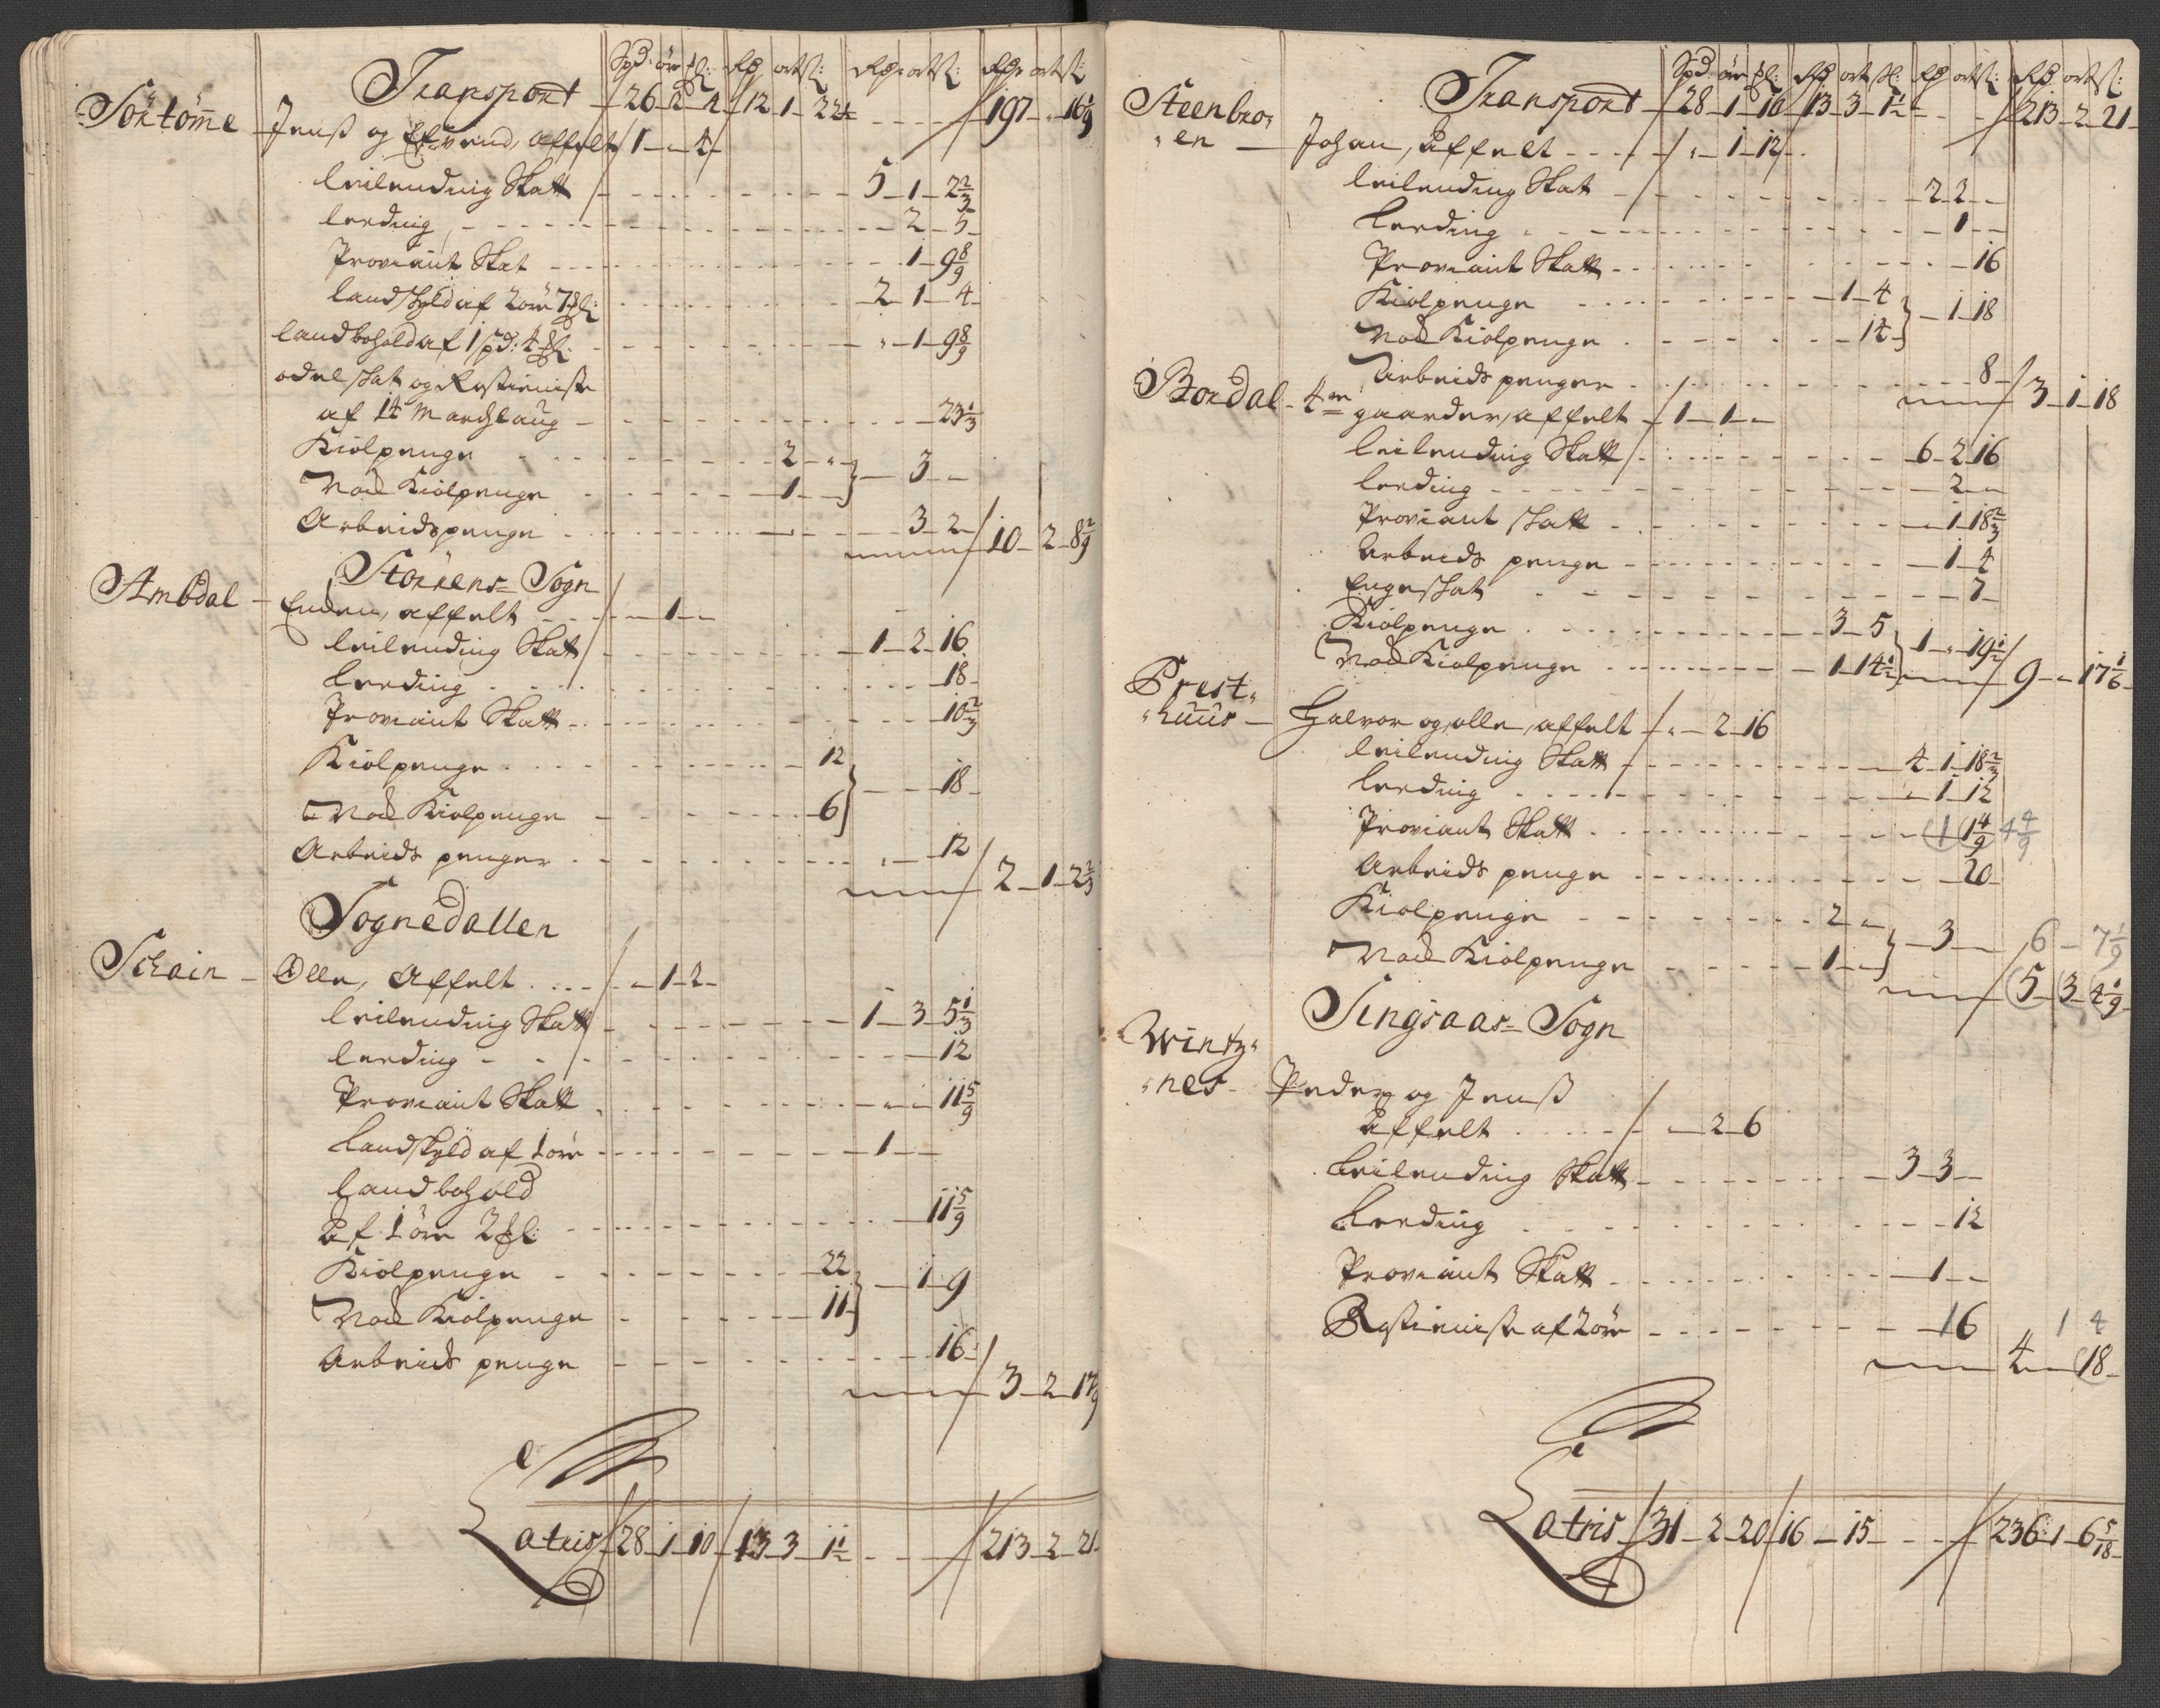 Spd: ör sl: Rd ort sl: Rd ort sl: Rd ort sl:
Transport 26 2 4 12 1 22½ 197 " 16 1/9
Sörtömme Jens og Effvend, affelt 1 " 4
leilending Skatt 5 1 2 2/3
leeding 2 5
Proviant Skat 1 9 8/9
landskyld af 2 öre 7 sl: 2 1 4
landbohold af 1 spd: 4 sl: " 1 9 8/9
odelskat og Rostieniste
af 14 Marchlaug 23 1/3
Kiölpenge 2 " 3
Nod Kiölpenge 1
Arbeidspenge 3 2
10 2 8 2/9
Störens Sogn
Ambdal Enden, affelt 1
leilending Skat 1 2 16
leeding 18
Proviant Skatt 10 2/3
Kiölpenge 12
18
Nod Kiölpenge 6
Arbeids penger 12
2 1 2 2/3
Sognedallen
Schain Olle, Affelt 1 2
leilending Skatt 1 3 5 1/3
leeding 12
Proviant Skatt 11 5/9
Landskyld af 1 öre 1
landbohold
af 1 öre 2 sl: 11 5/9
Kiölpenge 22 1 9
Nod Kiölpenge 11
Arbeids penge 16
3 2 17
Latris 28 1 10 13 3 1½ 213 2 21
Spd: ör sl: Rd ort sl: Rd ort sl: Rd ort sl:
Transport 28 1 10 13 3 1½ 213 2 21
Steenbro"
"en Johan, affelt " 1 12
leilending Skat 2 2
Leeding 1
Proviant Skatt 16
Kiölpenge 1 4
1 18
Nod Kiölpenge 14
Arbeids penger 8
3 1 18
Bordal 4re gaarder, affelt 1 1
leilending Skatt 6 2 16
leeding 2
Proviant skatt 1 18 2/3
Arbeids penge 1 4
Engeskat 7
Kiölpenge 3 5
1 " 19½
Nod Kiölpenge 1 14½ 9 17 1/6
Prest"
"huus Halvor og olle, affelt " 2 16
leilending Skatt 4 1 18 2/3
leeding 1 12
Proviant Skatt (1 (1 4/9 4 4/9
Arbeids penge 20
Kiölpenge 2
3 6 7 1/9
Nod Kiölpenge 1
(5 (3 4 1/9
Singsaas Sogn
Wintz"
"nes Peder og Jens
affelt " 2 6
Leilending Skatt 3 3
Leeding 12
Proviant Skatt 1
Rostieniste af 2 öre 16 1 4
4 (18
Latris 31 2 20 16 15 236 1 6 5/18